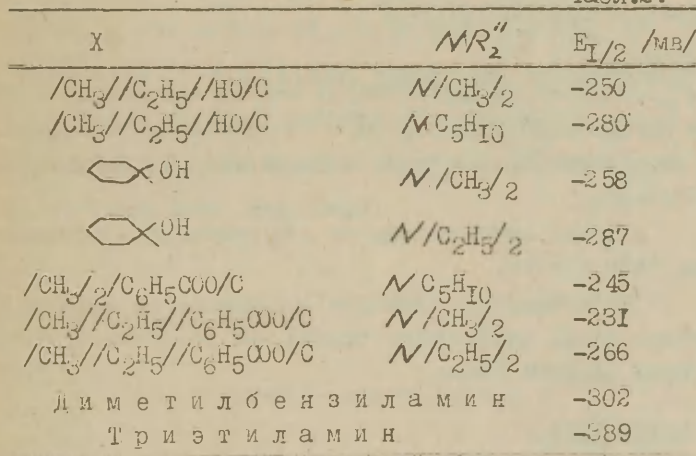 X NR₂" E_I/2 /мв/
/CH₃//C₂H₅//HO/C N/CH₃/₂ -250
/CH₃//C₂H₅//HO/C NC₅H_IO -280
OH N/CH₃/₂ -258
OH N/C₂H₅/₂ -287
/CH₃/₂/C₆H₅COO/C NC₅H_IO -245
/CH₃//C₂H₅//C₆H₅COO/C N/CH₃/₂ -23I
/CH₃//C₂H₅//C₆H₅COO/C N/C₂H₅/₂ -266
Диметилбензиламин -302
Триэтиламин -389